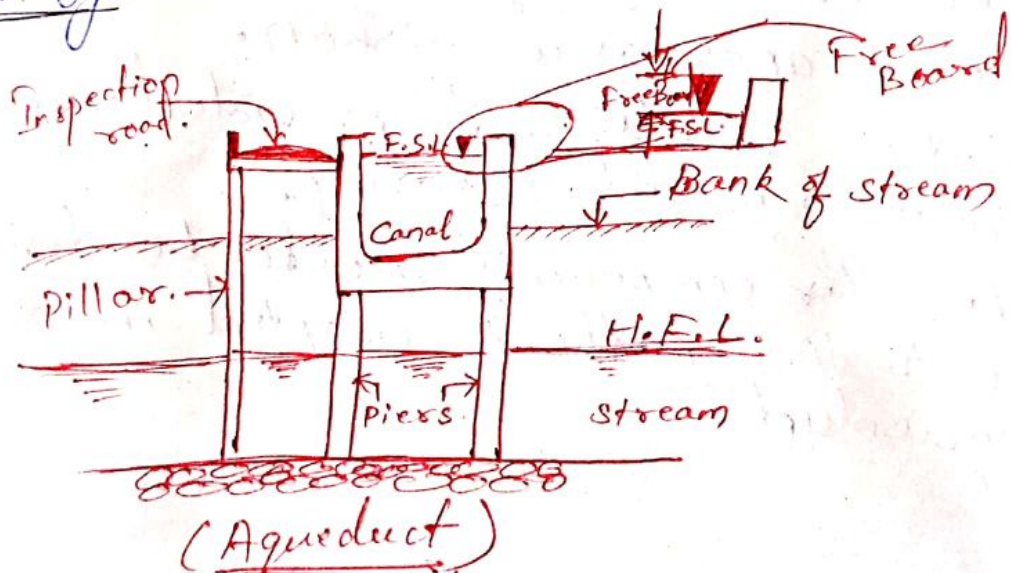 Inspection
road.
Free
Board
Free Boar
F.S.L.
F.S.L
Bank of stream
Canal
Pillar.
H.F.L.
Piers.
stream
(Aqueduct)